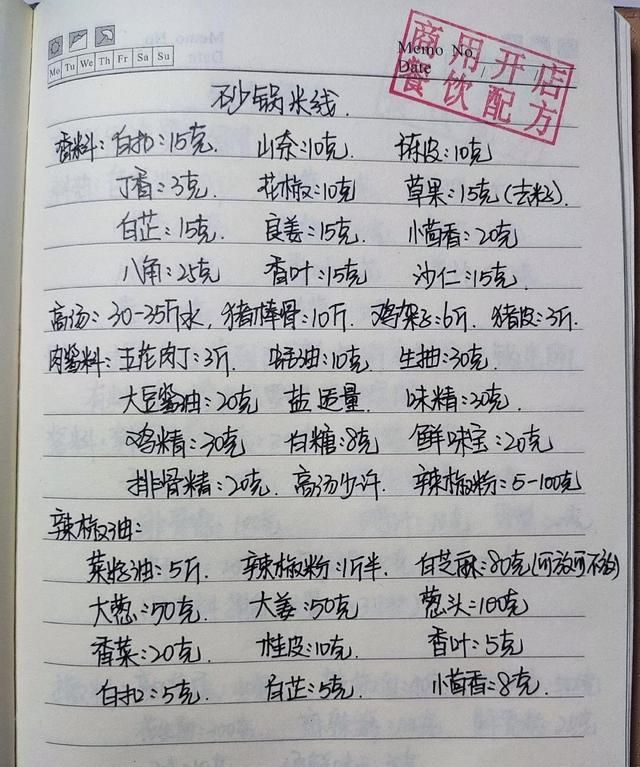 Memo No.
Date
Mo Tu We Th Fr Sa Su
商用开店
餐饮配方
砂锅米线.
香料: 白扣:15克. 山奈:10克. 陈皮:10克
丁香:3克. 花椒:10克 草果:15克(去籽).
白芷:15克 良姜:15克. 小茴香:20克
八角:25克 香叶:15克 沙仁:15克.
高汤: 30-35斤水, 猪棒骨:10斤. 鸡架子:6斤. 猪皮:3斤.
肉酱料: 五花肉丁:3斤. 蚝油:10克. 生抽:30克.
大豆酱油:20克 盐适量. 味精:20克.
鸡精:30克 白糖:8克 鲜味宝:20克
排骨精:20克. 高汤少许. 辣椒粉:5-100克
辣椒油:
菜籽油:5斤. 辣椒粉:1斤半. 白芝麻:80克(可放可不放)
大葱:50克 大姜:50克 葱头:100克
香菜:20克. 桂皮:10克. 香叶:5克
白扣:5克. 白芷:5克. 小茴香:8克.